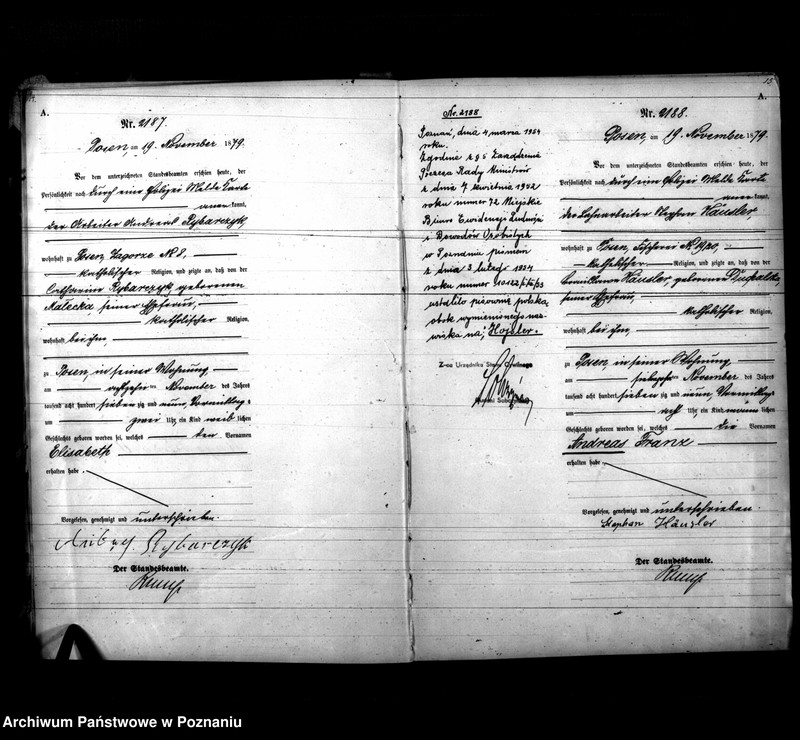 A.
Nr. 2187.
Posen, am 19. November 1879.
Vor dem unterzeichneten Standesbeamten erschien heute, der
Persönlichkeit nach durch eine Polizei Melde Karte
aner kannt,
der Arbeiter Andreas Rybarczyk,
wohnhaft zu Posen, Zagorze N. 8,
katholischer Religion, und zeigte an, daß von der
Catharina Rybarczyk geborenen
Malecka seiner Ehefrau,
katholischer Religion,
wohnhaft bei ihm,
zu Posen, in seiner Wohnung
am November des Jahres
tausend acht hundert sieben zig und neun, Vormittags
um zwei Uhr ein Kind weib lichen
Geschlechts geboren worden sei, welches den Vornamen
Elisabeth
erhalten habe.
Vorgelesen, genehmigt und unterschrieben.
Rybarczyk
Der Standesbeamte.
Nr. 2188
Poznań, dnia 4 marca 1954
roku.
Zgodnie z § 5 Zarządzenia
Prezesa Rady Ministrów
z dnia 7 kwietnia 1952
roku numer 72 Miejskie
Biuro Ewidencji Ludności
i Dowodów Osobistych
w Poznaniu pismem
z dnia 3 lutego 1954
roku numer
ustaliło pisownię polską
obok wymienionego naz-
wiska na:
Z-ca Urzędnika Stanu Cywilnego
15
A.
Nr. 2188.
Posen, am 19. November 1879.
Vor dem unterzeichneten Standesbeamten erschien heute, der
Persönlichkeit nach durch eine Polizei Melde Karte
aner kannt,
der Stephan Häusler,
wohnhaft zu Posen, N. 19/20,
katholischer Religion, und zeigte an, daß von der
Häusler, geborenen
seiner Ehefrau,
katholischer Religion,
wohnhaft bei ihm,
zu Posen, in seiner Wohnung
am November des Jahres
tausend acht hundert sieben zig und neun, Vormittags
um acht Uhr, ein Kind männ lichen
Geschlechts geboren worden sei, welches die Vornamen
Andreas Franz
erhalten habe.
Vorgelesen, genehmigt und unterschrieben.
Stephan Häusler
Der Standesbeamte.
Archiwum Państwowe w Poznaniu